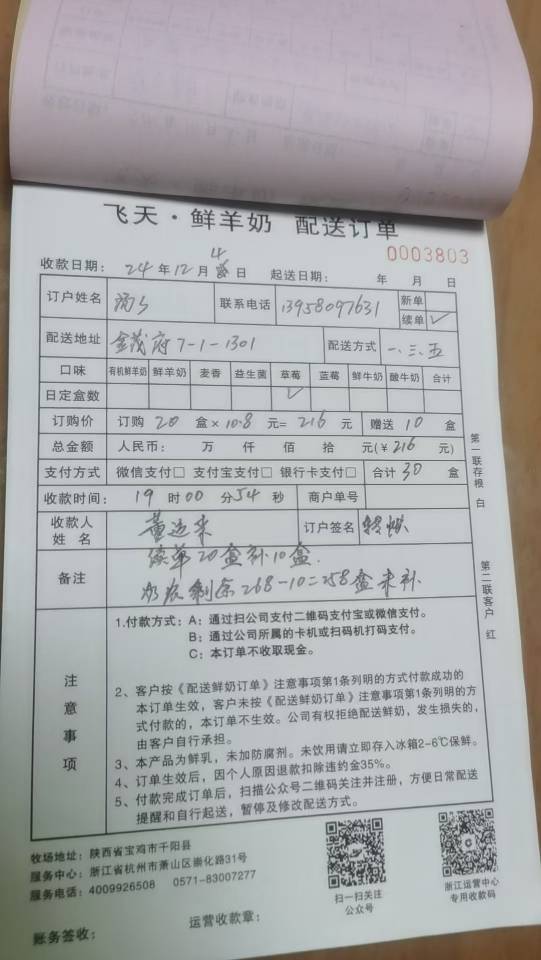 飞天·鲜羊奶 配送订单
0003803
收款日期: 24 年 12 月 4 日 起送日期: 年 月 日
订户姓名 联系电话 13958097631 新单
续单 ✓
配送地址 金茂府 7-1-1301 配送方式 一、三、五
口味 有机鲜羊奶 鲜羊奶 麦香 益生菌 草莓 蓝莓 鲜牛奶 酸牛奶 合计
日定盒数 ✓
订购价 订购 20 盒 × 10.8 元= 216 元 赠送 10 盒
总金额 人民币: 万 仟 佰 拾 元(¥ 216 元)
支付方式 微信支付□ 支付宝支付□ 银行卡支付□ 合计 30 盒
收款时间: 19 时 00 分 54 秒 商户单号
收款人姓名 订户签名
备注 续单20盒补10盒.
奶农剩余268-10=258盒未补
注意事项
1.付款方式: A: 通过扫公司支付二维码支付宝或微信支付。
B: 通过公司所属的卡机或扫码机打码支付。
C: 本订单不收取现金。
2、客户按《配送鲜奶订单》注意事项第1条列明的方式付款成功的
本订单生效，客户未按《配送鲜奶订单》注意事项第1条列明的方
式付款的，本订单不生效。公司有权拒绝配送鲜奶，发生损失的，
由客户自行承担。
3、本产品为鲜乳，未加防腐剂。未饮用请立即存入冰箱2-6℃保鲜。
4、订单生效后，因个人原因退款扣除违约金35%。
5、付款完成订单后，扫描公众号二维码关注并注册，方便日常配送
提醒和自行起送，暂停及修改配送方式。
第一联存根 白
第二联客户 红
牧场地址: 陕西省宝鸡市千阳县
服务中心: 浙江省杭州市萧山区崇化路31号
服务电话: 4009926508 0571-83007277
扫一扫关注
公众号
浙江运营中心
专用收款码
账务签收: 运营收款章: